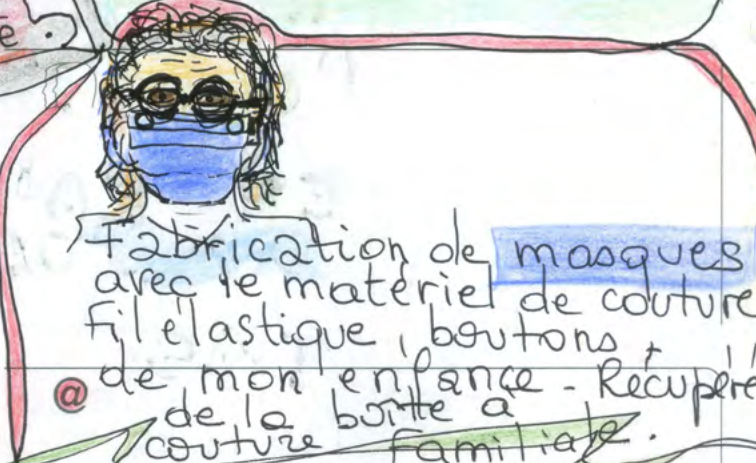 te.
Fabrication de masques
avec le matériel de couture
fil élastique, boutons,
@ de mon enfance - Récupéré
de la boîte à
couture familiale.